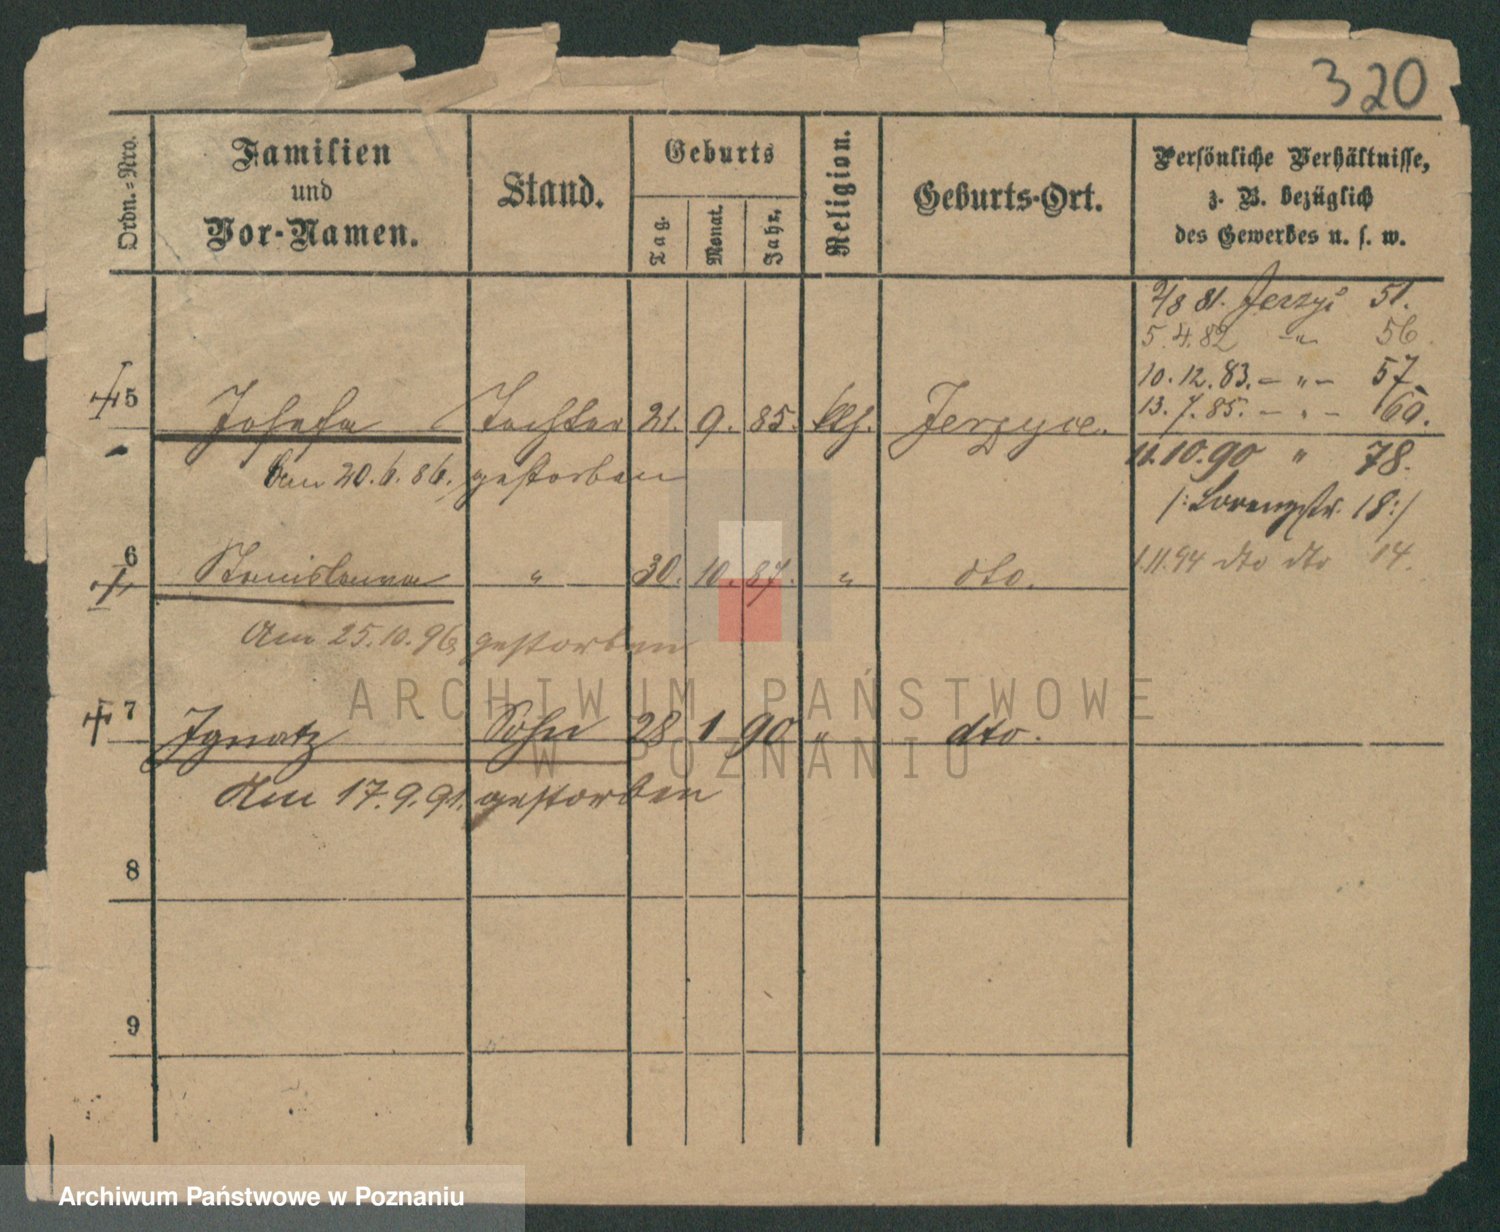 320
Ordn.=Nro.
Familien
und
Vor-Namen.
Stand.
Geburts
Tag.
Monat.
Jahr.
Religion.
Geburts-Ort.
Persönliche Verhältnisse,
z. B. bezüglich
des Gewerbes u. s. w.
2/8 81. Jerzyc 51.
5.4.82 -"- 56.
10.12.83. - " - 57.
13.7.85. - " - 60.
5 Josefa Tochter 21. 9. 85. kth. Jerzyce.
Am 20.6.86. gestorben
11.10.90 " 78.
/:Lorenzstr. 18:/
1.11.94 dto dto 14.
6 Stanislawa " 30. 10. 87. " dto.
Am 25.10.96 gestorben
7 Ignatz Sohn 28 1 90 " dto.
Am 17.9.91. gestorben
8
9
ARCHIWUM PAŃSTWOWE
W POZNANIU
Archiwum Państwowe w Poznaniu